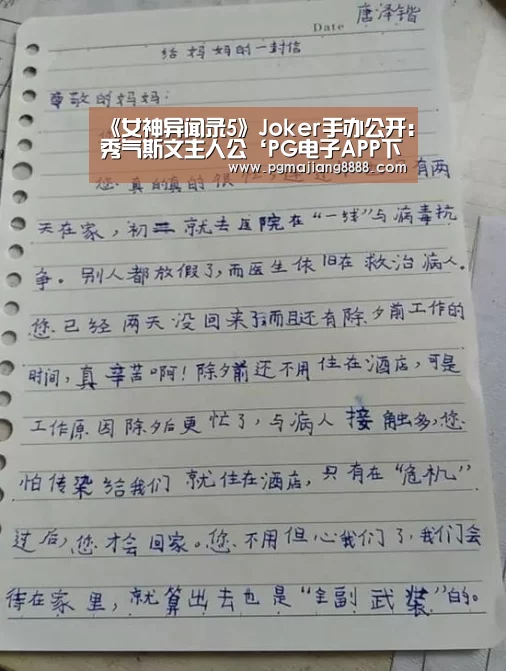 唐泽锴
Date
给妈妈的一封信
尊敬的妈妈:
《女神异闻录5》Joker手办公开:
秀气斯文主人公‘PG电子APP下
www.pgmajiang8888.com
您真的真的很
有两
天在家，初二就去医院在“一线”与病毒抗
争。别人都放假了，而医生依旧在救治病人.
您已经两天没回来了而且还有除夕前工作的
时间，真辛苦啊！除夕前还不用住在酒店，可是
工作原因除夕后更忙了，与病人接触多，您
怕传染给我们就住在酒店，只有在“危机”
过后，您才会回家。您不用但心我们了，我们会
待在家里，就算出去也是“全副武装”的。